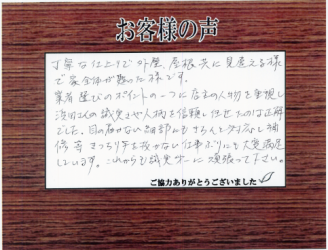 お客様の声
丁寧な仕上りで外壁、屋根共に見違える様
で家全体が甦った様です。
業者選びのポイントの一つに店主の人物を重視し
の誠実さや人柄を信頼し任せたのは正解
でした。目の届かない細部にもきちんと対応し補
修等きっちり手を抜かない仕事ぶりにも大変満足
しています。これからも誠実第一に頑張って下さい。
ご協力ありがとうございました